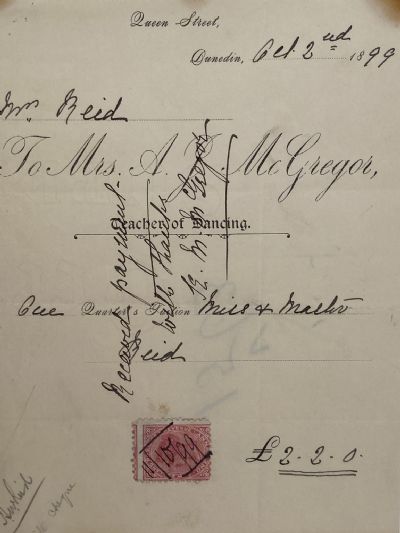 Queen Street,
Dunedin, Oct. 2nd 1899
Mrs Reid
To Mrs. A. McGregor,
Teacher of Dancing.
One Quarter's Tuition Miss & Master
Reid
£2.2.0.
Received payment
with thanks
McGregor
10/99